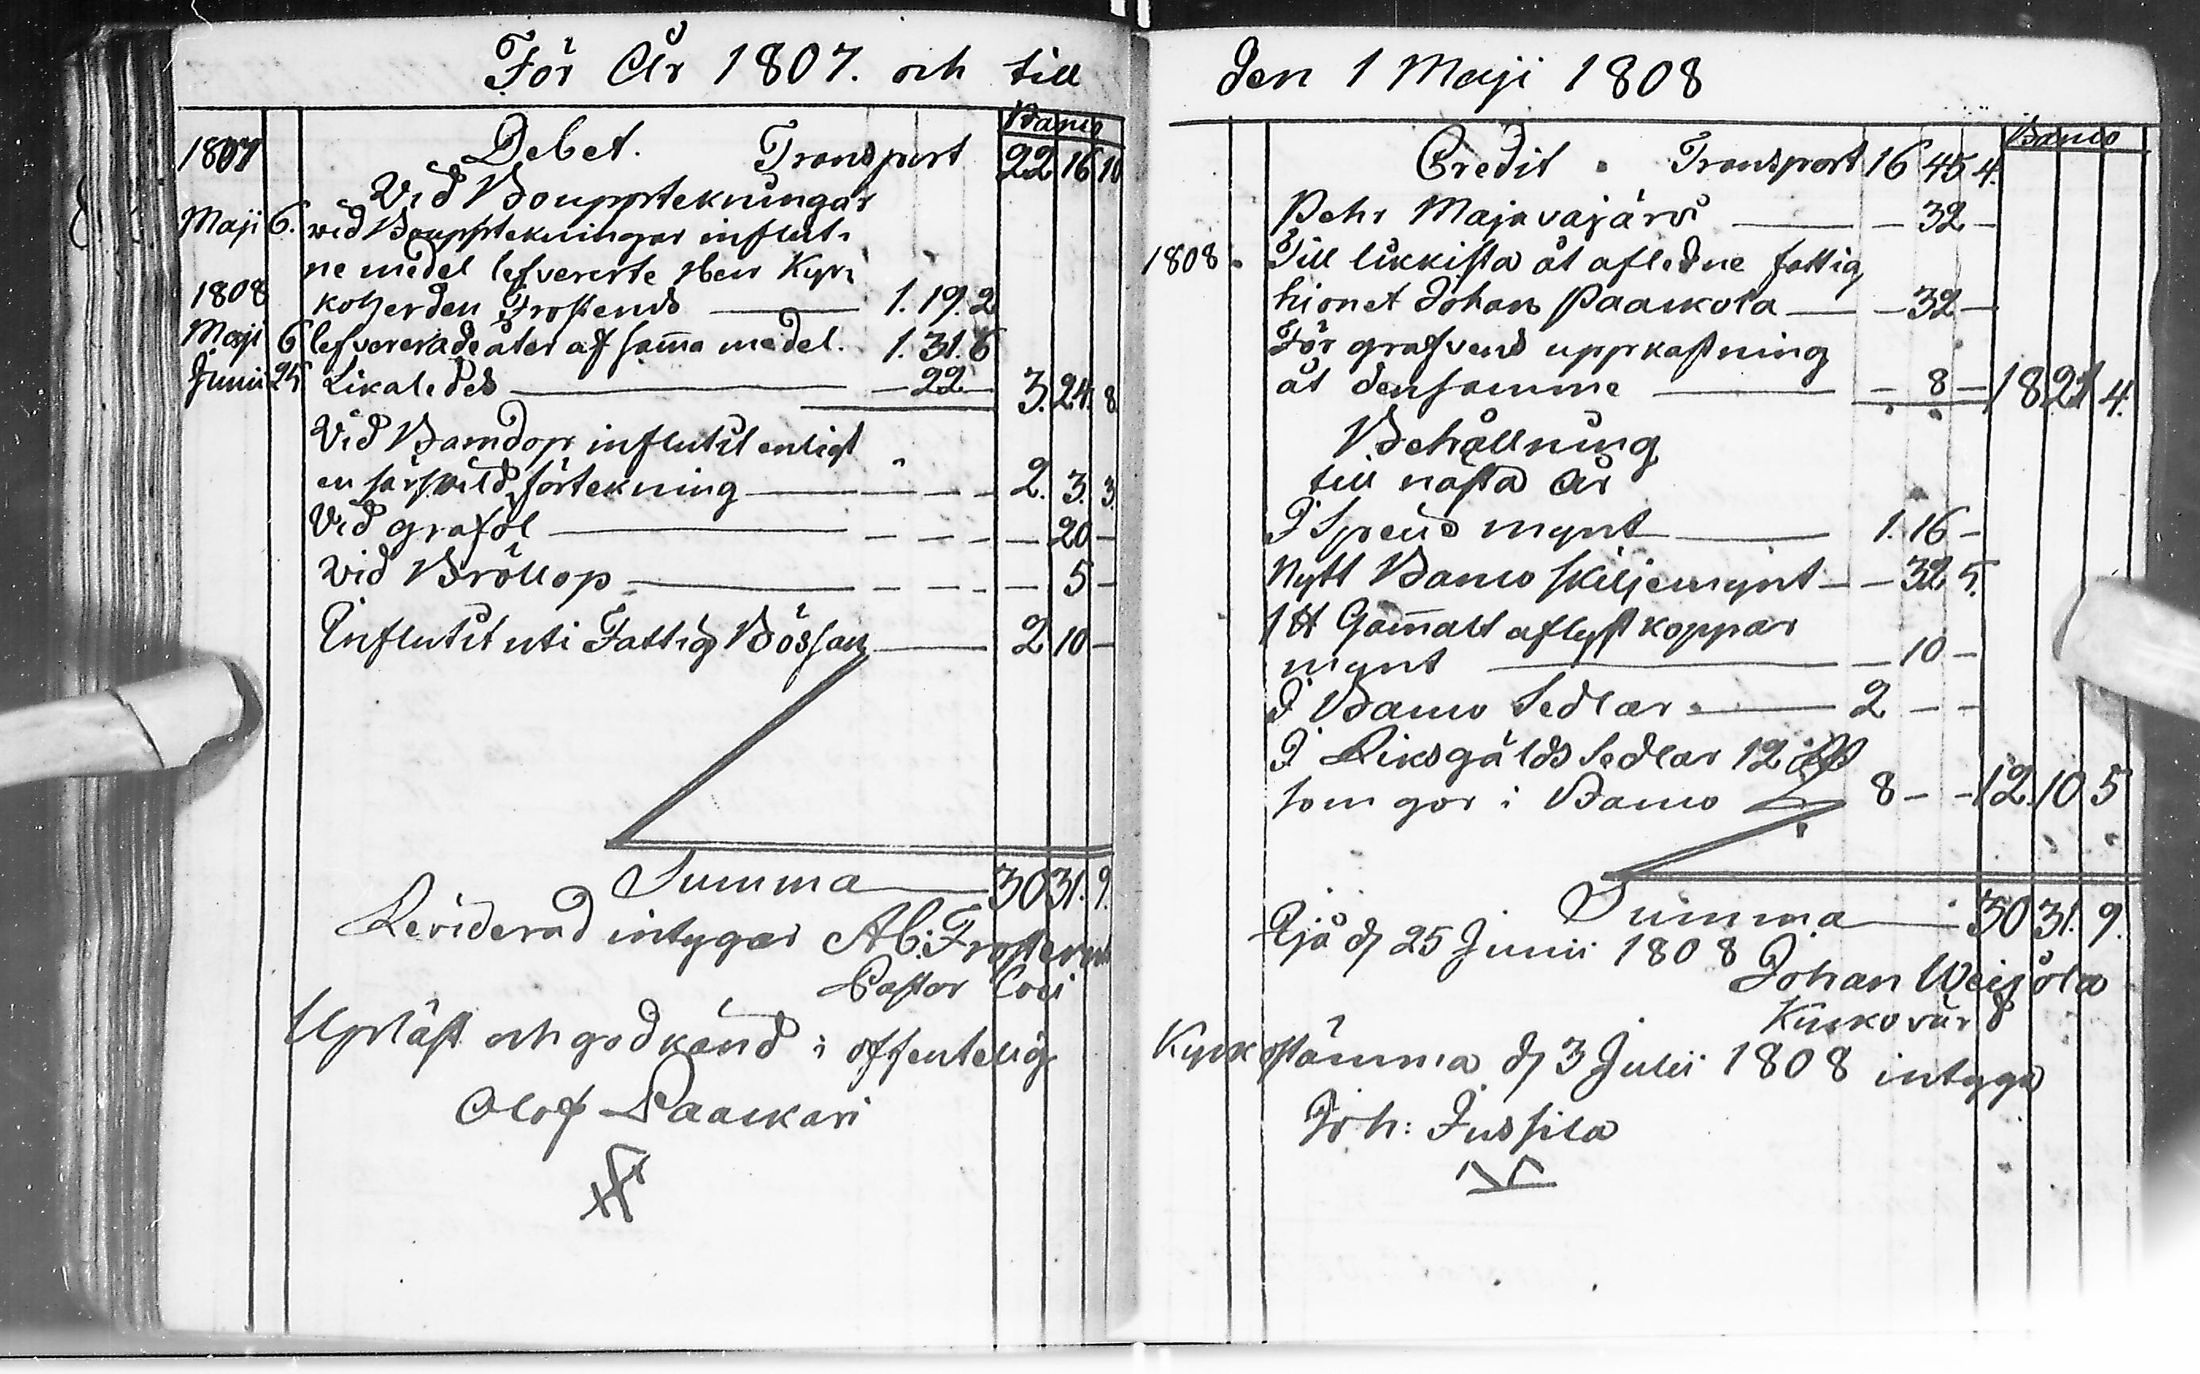 För År 1807. och till
Banco
1807 Debet. Transport 22 16 10
Vid Bouppteknungar
Maji 6. wid Bouppteknningar influt-
ne medel lefvererte Herr Kyr-
1808 koherden Frosterus 1. 19. 2
Maji 6 lefvererade åter af samma medel. 1. 31. 6
Junii 25 Likaledes — 22 — 3. 24. 8.
Vid Barndop influtit enligt
en särskild förtekning — — — 2. 3. 3.
Vid grafföl — — — — 20 —
wid Bröllop — — — — 5 —
Influtit uti Fattig Bössan — 2 10 —
Summa 30 31. 9.
Reviderad intygar Ab: Frosterus
Pastor Loci
Upläst och godkänd i offentelig
Olof Paackari
den 1 Maji 1808
Banco
Credit. Transport 16 45 4.
Pehr Majavajärvi — 32 —
1808. Till likkista åt afledne fattig
hionet Johan Paackola — 32 —
För grafvens uppkastning
åt densamme — 8 — 18 21 4.
Behållning
till nästa År
I Specie mynt 1. 16 —
Nytt Banco skiljemynt — 32 5.
1 ℔ Gam̄alt aflyst koppar
mynt — 10 —
I Banco Sedlar 2 — —
I Riksgälds Sedlar 12 Rd
som gör i Banco 8 — — 12. 10 5
Summa 30 31. 9.
Ijå d 25 Junii 1808 Johan Weijola
Kyrkovärd
Kyrkostämma d 3 Julii 1808 intyga
Joh: Jussila